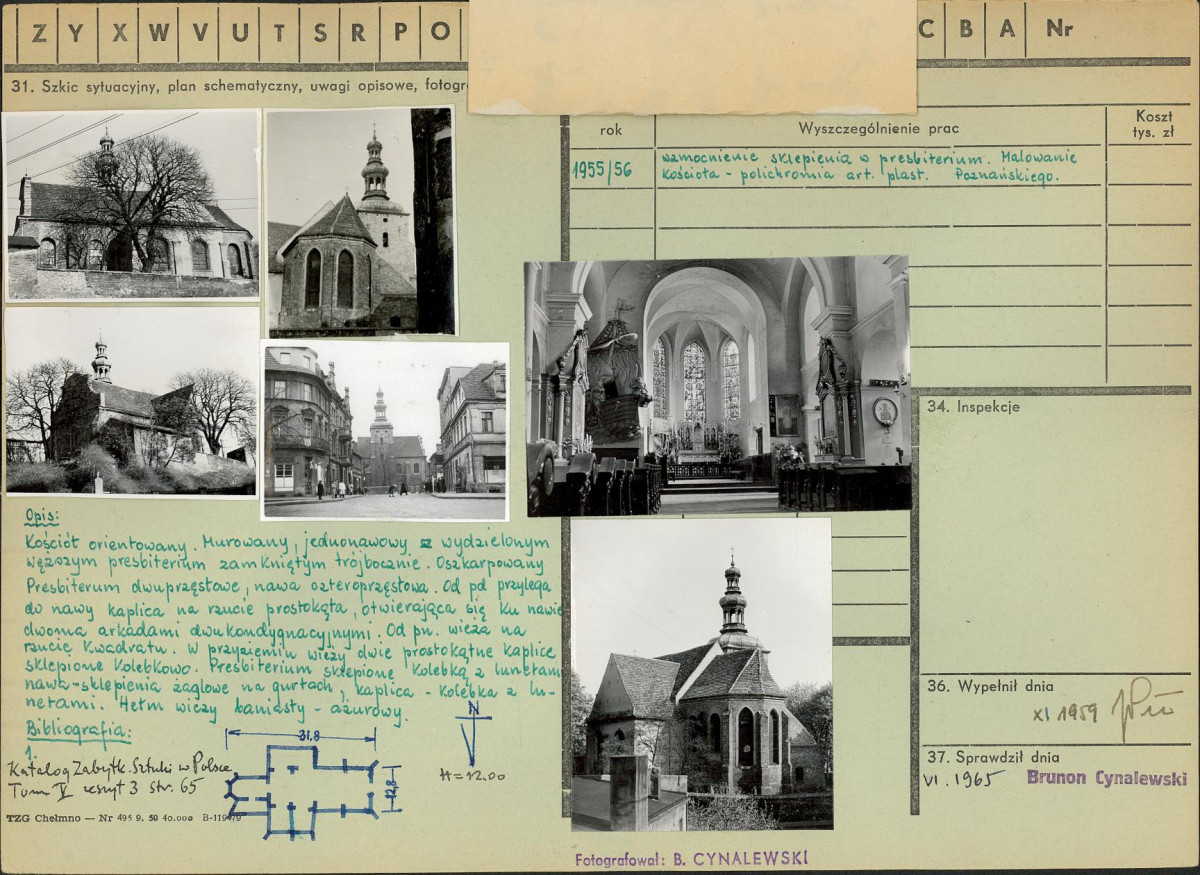 Z Y X W V U T S R P O C B A Nr
31. Szkic sytuacyjny, plan schematyczny, uwagi opisowe, fotogr
rok
Wyszczególnienie prac
Koszt
tys. zł
1955/56
wzmocnienie sklepienia w presbiterium. Malowanie
Kościoła - polichromia art. plast. Poznańskiego.
Opis:
Kościół orientowany. Murowany, jednonawowy z wydzielonym
węższym presbiterium zamkniętym trójbocznie. Oszkarpowany
Presbiterum dwuprzęsłowe, nawa czteroprzęsłowa. Od pd przylega
do nawy kaplica na rzucie prostokąta, otwierająca się ku nawie
dwoma arkadami dwukondygnacyjnymi. Od pn. wieża na
rzucie kwadratu. W przyziemiu wieży dwie prostokątne kaplice
sklepione kolebkowo. Presbiterium sklepione kolebką z lunetami
nawa - sklepienia żaglowe na gurtach, kaplica - kolebka z lu-
netami. Hełm wieży baniasty - ażurowy.
Bibliografia:
1.
Katalog Zabytk. Sztuki w Polsce
Tom V zeszyt 3 str. 65
31,8
12,8
N
H = 12.00
TZG Chełmno — Nr 495 9. 50 40.000 B-119479
34. Inspekcje
36. Wypełnił dnia
XI 1959
37. Sprawdził dnia
VI. 1965 Brunon Cynalewski
Fotografował: B. CYNALEWSKI